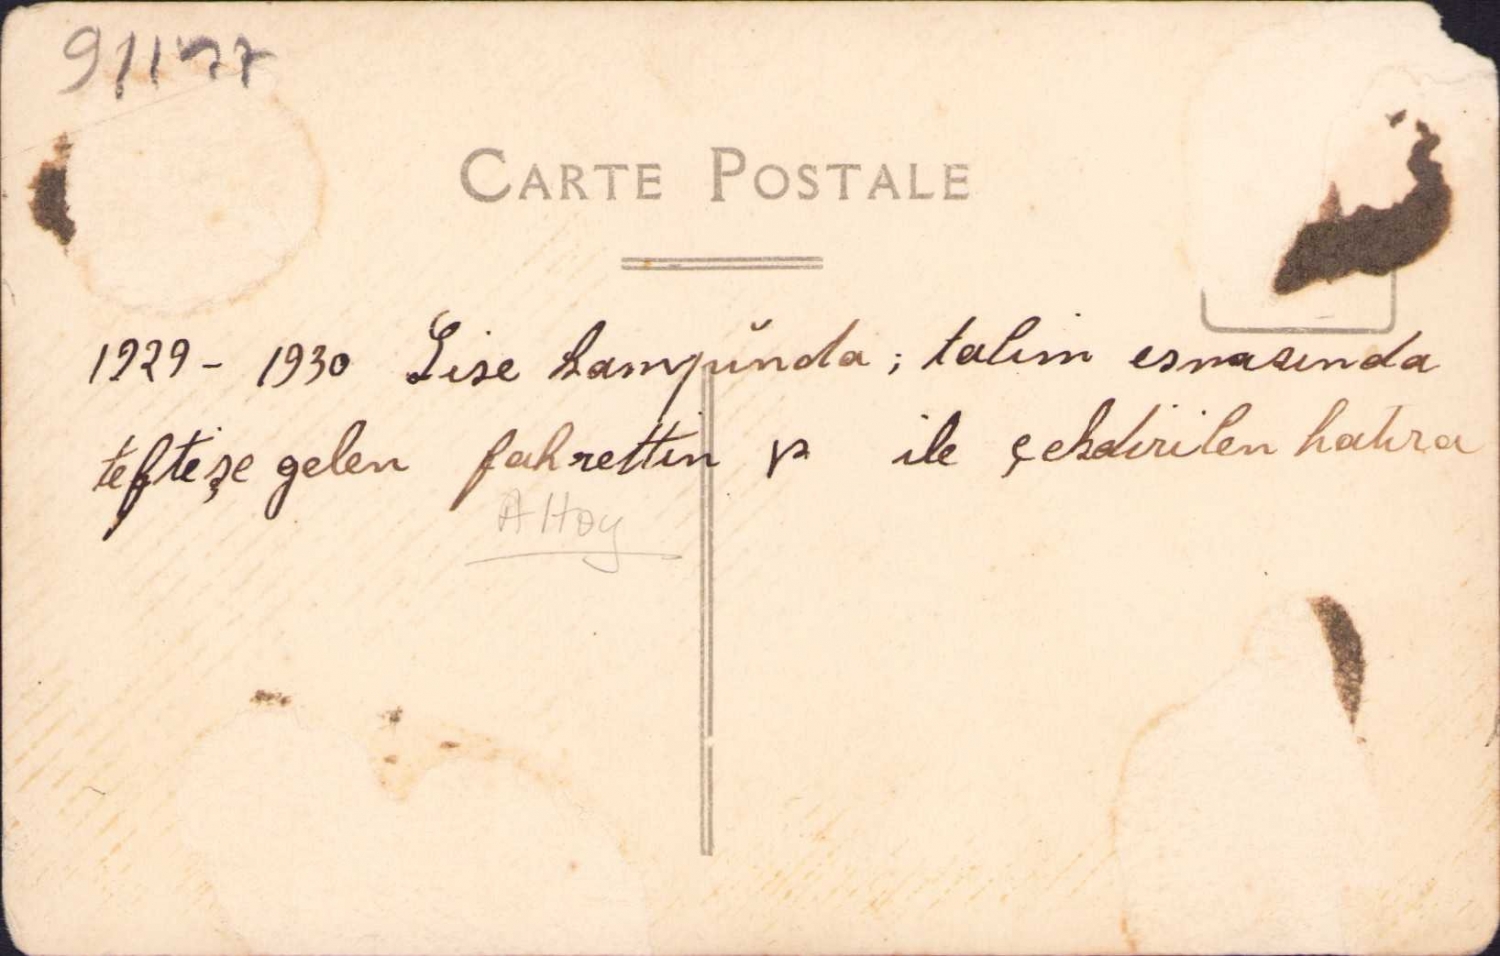 CARTE POSTALE
1929 - 1930 Lise kampında; talim esnasında
teftişe gelen fahrettin p ile çekdirilen hatıra
Altay